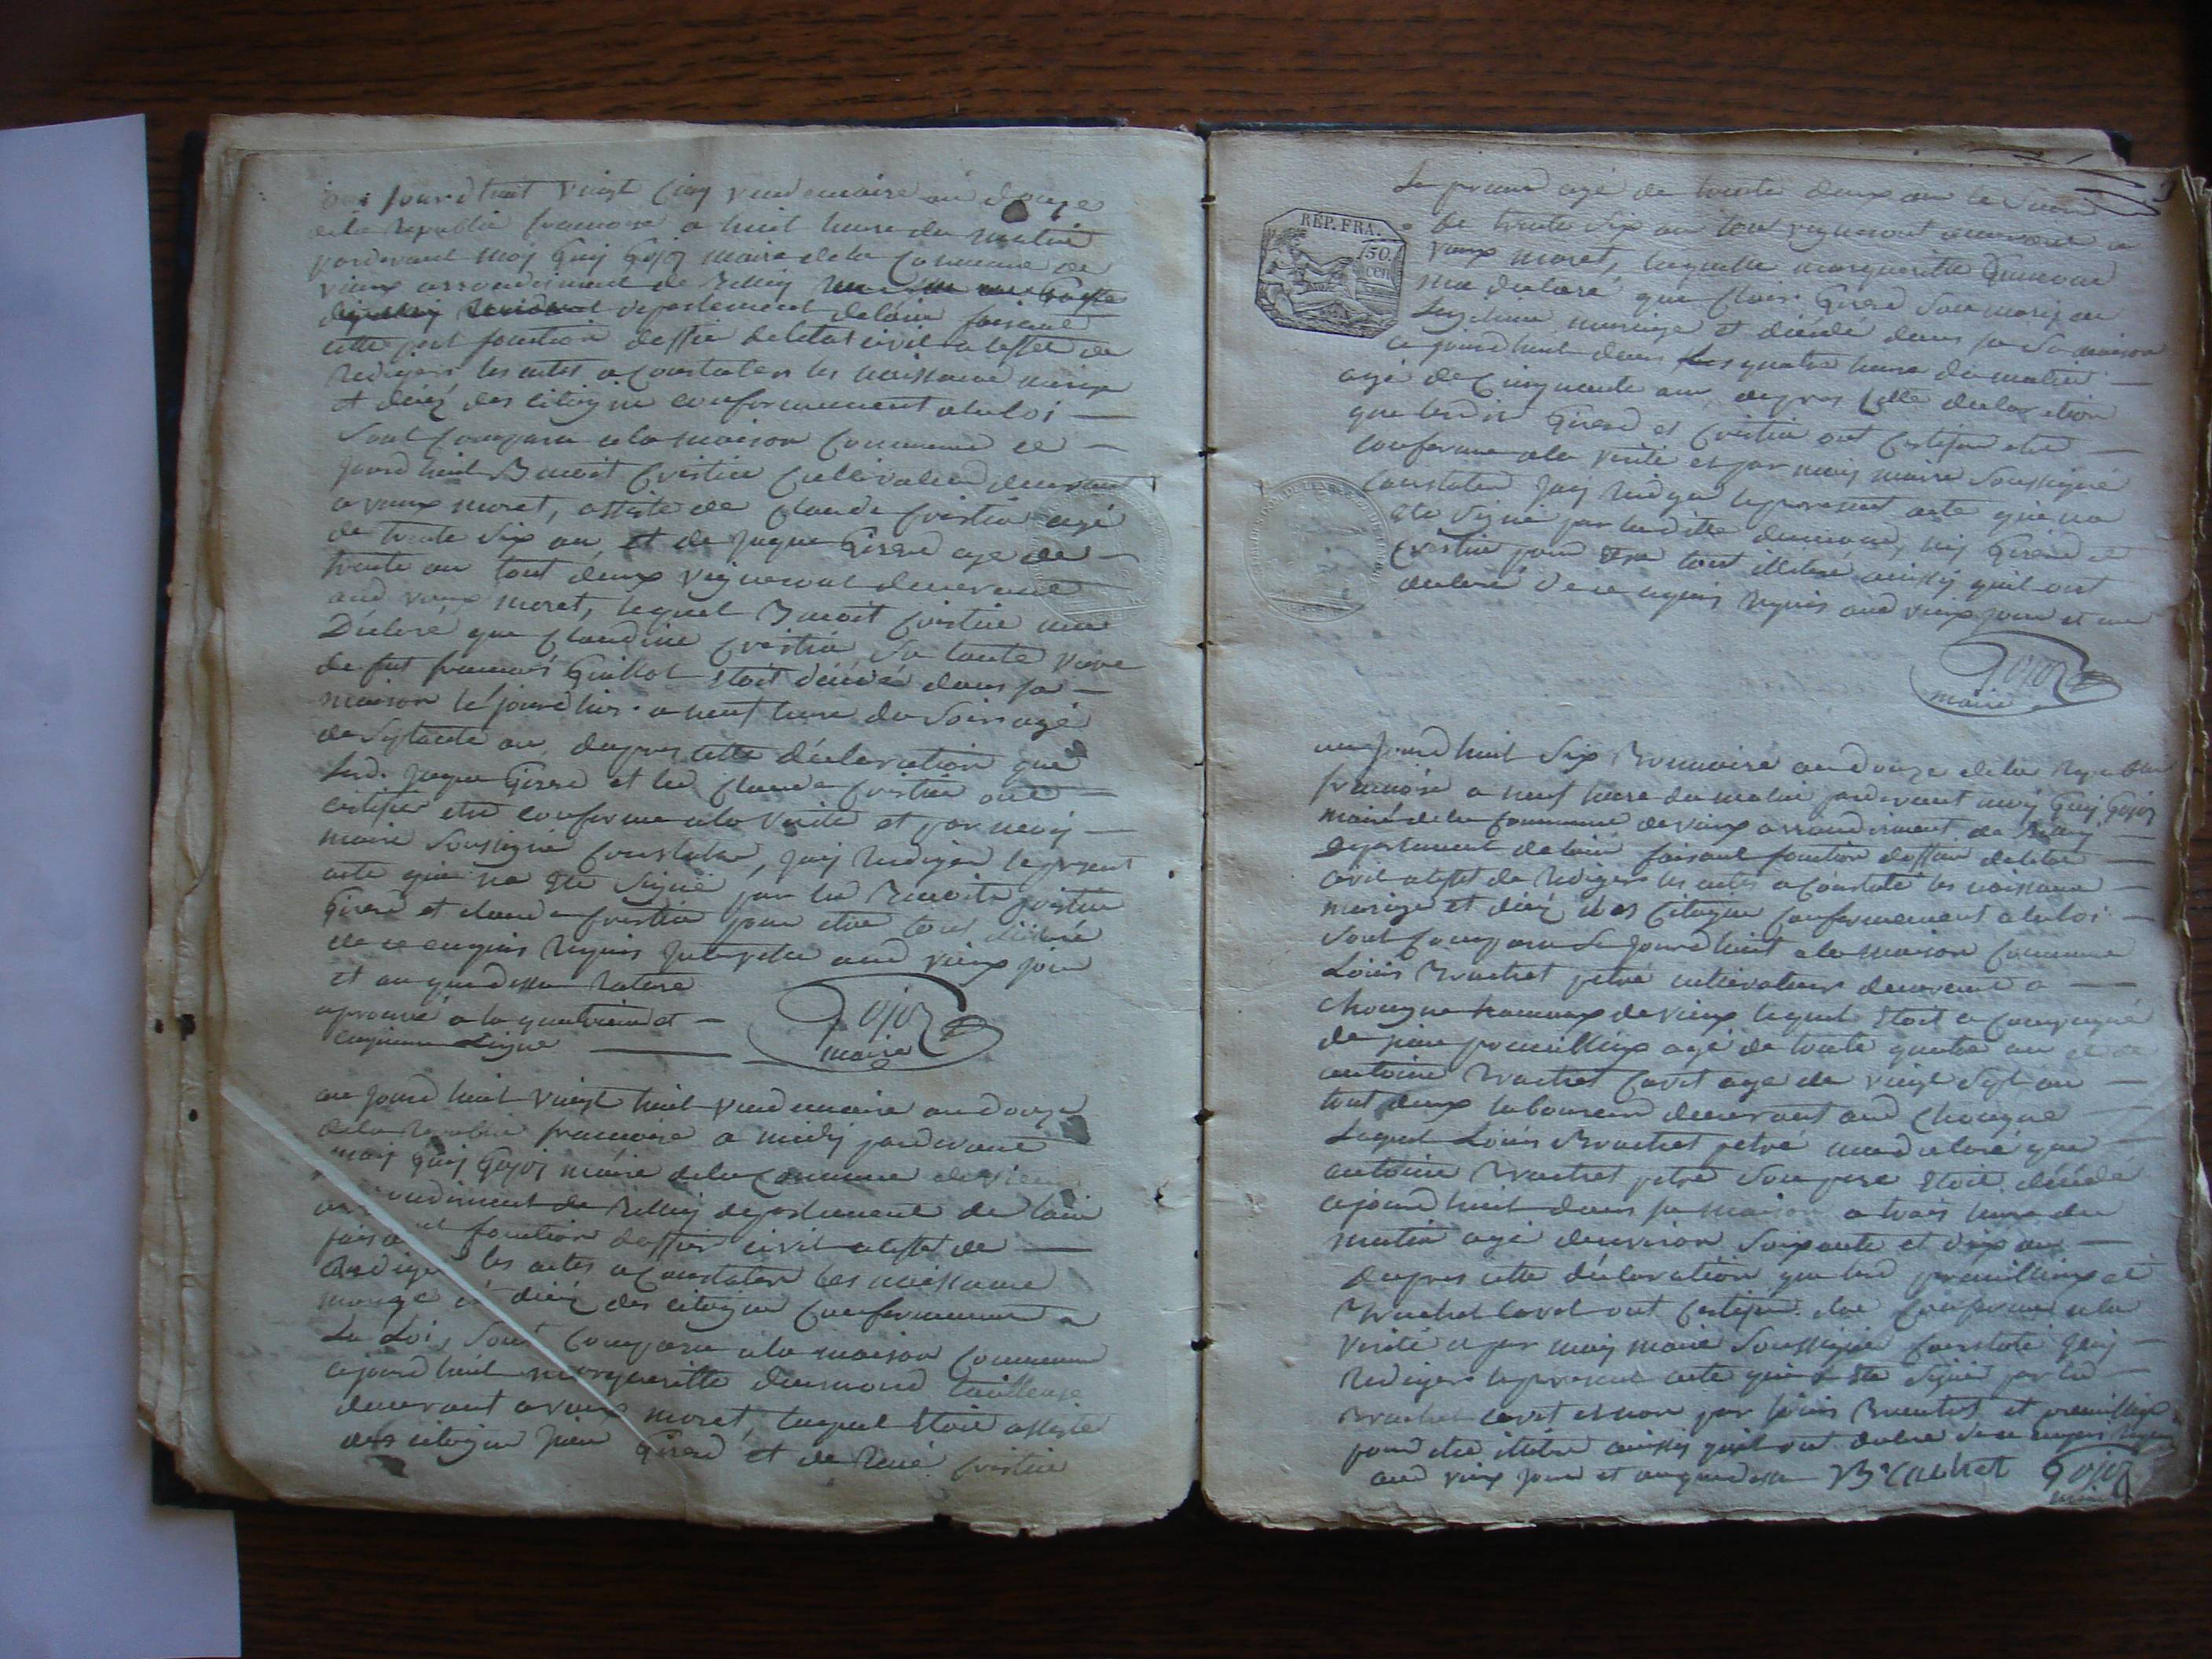 aujourdhuit vingt cinq vendemaire an douze
de la Republie francoise a huit heure du matin
pardevant moy Guy Gojoz maire de la Commune de
vieux arrondisment de Belley
departement de lain faisant
cette part fonction doffier deletat civil a leffet de
Rediger les actes a Constater les naissance mariage
et décé des citoyin conformement a la loi —
Sont Comparu a la maison Commune ce —
jourdhuit Benoit Cristin Cultivateur demeurant
a vaux moret, assiste de Claude Cristin agé
de trente six an et de Jaque Girerd age de —
trente an tout deux vigneront demeurant
aud vaux moret, lequel Benoit Cristin ma
Déclaré que Claudine Cristin, sa tante veuve
de fut francois Guillot etoit décédé dans sa —
maison le jourdhier a neuf heure du Soir agé
de Septante an, dapres cette déclaration que
led. Jaque Girerd et led Claude Cristin ont —
certifier etre conforme a la verité et par moy —
maire Soussigné Constater, jay Rediger le present
acte qui na été Signé par led Benoit Cristin
Girerd et claude Cristin pour etre tous illitéré
de ce enquis Requis aud vieux jour
et an que dessu Rature
aprouvé a la quatrieme et —
cinquieme Ligne
Gojoz
maire
aujourdhuit vingt huit vendemaire an douze
de la Republie francoise a midy pardevant
moy Guy Gojoz maire de la Commune de vieux
arrondisment de Belley departement de lain
faisant fonction doffier civil a leffet de —
Rediger les actes a Constater les naissance
mariage et décé des citoyin Conformement a
La Loi, Sont Comparu a la maison Commune
cejourdhuit margueritte Dumond tailleuse
demeurant a vaux moret, laquel Etoit assiste
des citoyin Girerd et de René Cristin
Le premié agé de trente deux an le Second
de trente Six an tout vigneront demeurant a
REP. FRA.
50
CEN
vaux moret, laquelle marguerite Dumond
ma declaré que Clair Girerd Son mary en
Legitime mariage et décédé dans sa maison
cejourdhuit dans les quatre heure du matin —
agé de Cinquante an, dapres Cette declaration
que lesdit Girerd et Cristin ont Certifier etre —
conforme a la verité et par moy maire Soussigné
Constater jay Rediger le present acte qui na
été Signé par ladite dumond, ny Girerd et
Cristin pour etre tout illitéré aussy quil ont
declaré de ce enquis Requis aud vieux jour et an
Gojoz
maire
aujourdhuit Six Brumaire an douze de la Republie
francoise a neuf heure du matin pardevant moy Guy Gojoz
maire de la Commune de vieux arrondisment de Belley
departement de lain faisant fonction doffier deletat —
civil a leffet de Rediger les actes a Constaté les naissance —
mariage et décé des Citoyin Conformement a la loi —
Sont Comparu Ce jourdhuit a la maison Commune
Louis Brachet petre cultivateur demeurant a —
Chongne hameaux de vieux lequel Etoit a Compagné
de agé de trente quatre an et de
antoine Brachet Cavet agé de vingt Sept an —
tout deux laboureur demeurant aud Chongne —
Lequel Louis Brachet petre ma declaré que —
antoine Brachet petre Son pere Etoit décédé
cejourdhuit dans sa maison a trois heure du
matin agé denviron Soixante et dix an —
dapres cette déclaration que led et
Brachet Cavet ont Certifier etre Conforme a la
Verité et par moy maire Soussigné Constaté jay —
Rediger le present acte qui a été Signé par led —
Brachet Cavet et non par Louis Brachet et
pour etre illitéré aussy quil ont declaré de ce enquis Requis
aud vieux jour et an que dessu Brachet Gojoz
maire